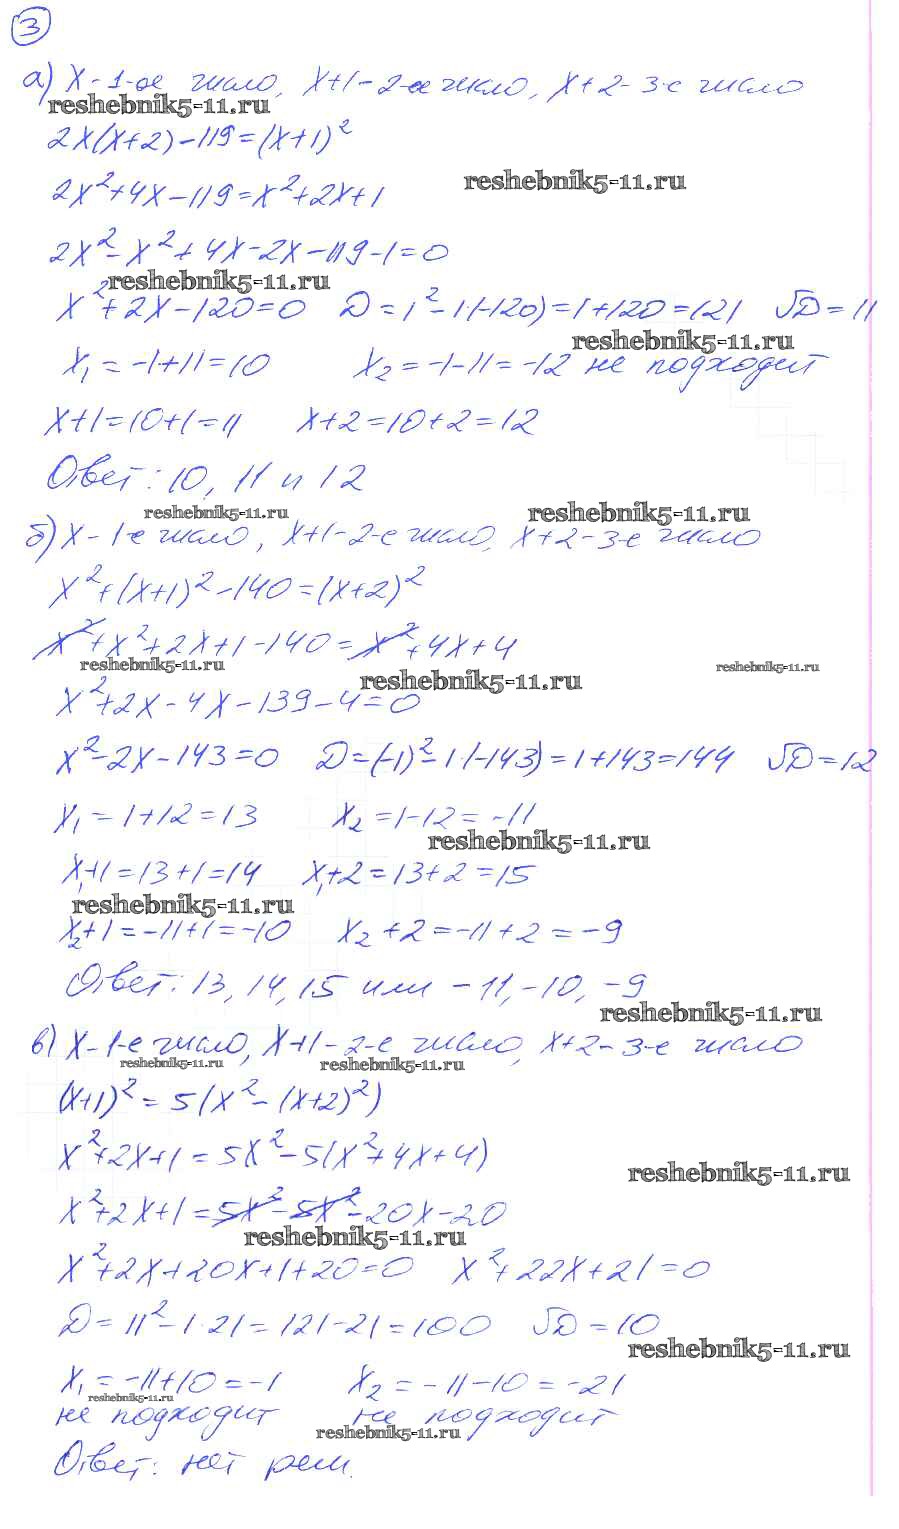 3
а) x - 1-ое число, x+1 - 2-ое число, x+2 - 3-е число
reshebnik5-11.ru
2x(x+2) - 119 = (x+1)²
reshebnik5-11.ru
2x² + 4x - 119 = x² + 2x + 1
2x² - x² + 4x - 2x - 119 - 1 = 0
reshebnik5-11.ru
x² + 2x - 120 = 0 D = 1² - 1·(-120) = 1 + 120 = 121 √D = 11
reshebnik5-11.ru
x₁ = -1 + 11 = 10 x₂ = -1 - 11 = -12 не подходит
x+1 = 10+1 = 11 x+2 = 10+2 = 12
Ответ: 10, 11 и 12
reshebnik5-11.ru reshebnik5-11.ru
б) x - 1-е число, x+1 - 2-е число, x+2 - 3-е число
x² + (x+1)² - 140 = (x+2)²
x² + x² + 2x + 1 - 140 = x² + 4x + 4
reshebnik5-11.ru reshebnik5-11.ru
reshebnik5-11.ru
x² + 2x - 4x - 139 - 4 = 0
x² - 2x - 143 = 0 D = (-1)² - 1·(-143) = 1 + 143 = 144 √D = 12
x₁ = 1 + 12 = 13 x₂ = 1 - 12 = -11
reshebnik5-11.ru
x₁+1 = 13+1 = 14 x₁+2 = 13+2 = 15
reshebnik5-11.ru
x₂+1 = -11+1 = -10 x₂+2 = -11+2 = -9
Ответ: 13, 14, 15 или -11, -10, -9
reshebnik5-11.ru
в) x - 1-е число, x+1 - 2-е число, x+2 - 3-е число
reshebnik5-11.ru reshebnik5-11.ru
(x+1)² = 5(x² - (x+2)²)
x² + 2x + 1 = 5x² - 5(x² + 4x + 4)
reshebnik5-11.ru
x² + 2x + 1 = 5x² - 5x² - 20x - 20
reshebnik5-11.ru
x² + 2x + 20x + 1 + 20 = 0 x² + 22x + 21 = 0
D = 11² - 1·21 = 121 - 21 = 100 √D = 10
reshebnik5-11.ru
x₁ = -11 + 10 = -1 x₂ = -11 - 10 = -21
reshebnik5-11.ru
не подходит не подходит
reshebnik5-11.ru
Ответ: нет реш.